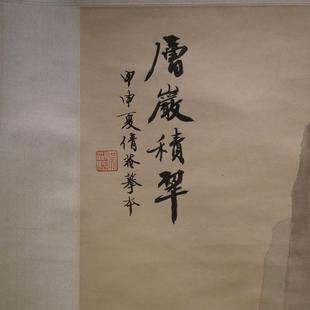 層巖積翠
甲申夏倩菴摹本